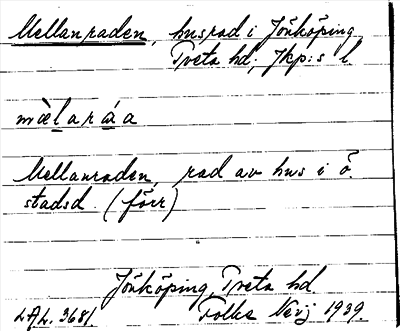 Mellanraden, husrad i Jönköping,
Tveta hd; Jkp:s l
mèlaráa
Mellanraden, rad av hus i ö.
stadsd. (förr)
Jönköping, Tveta hd.
LAL. 3681. Folke Nevj 1939.